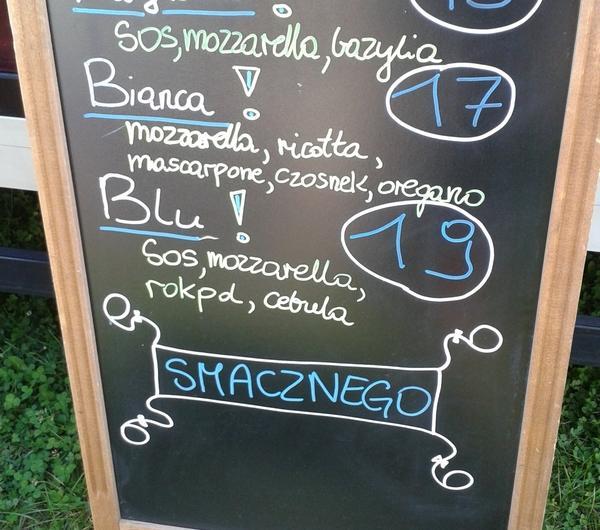 sos, mozzarella, bazylia
Bianca ! 17
mozzarella, ricotta,
mascarpone, czosnek, oregano
Blu ! 19
sos, mozzarella,
rokpol, cebula
SMACZNEGO